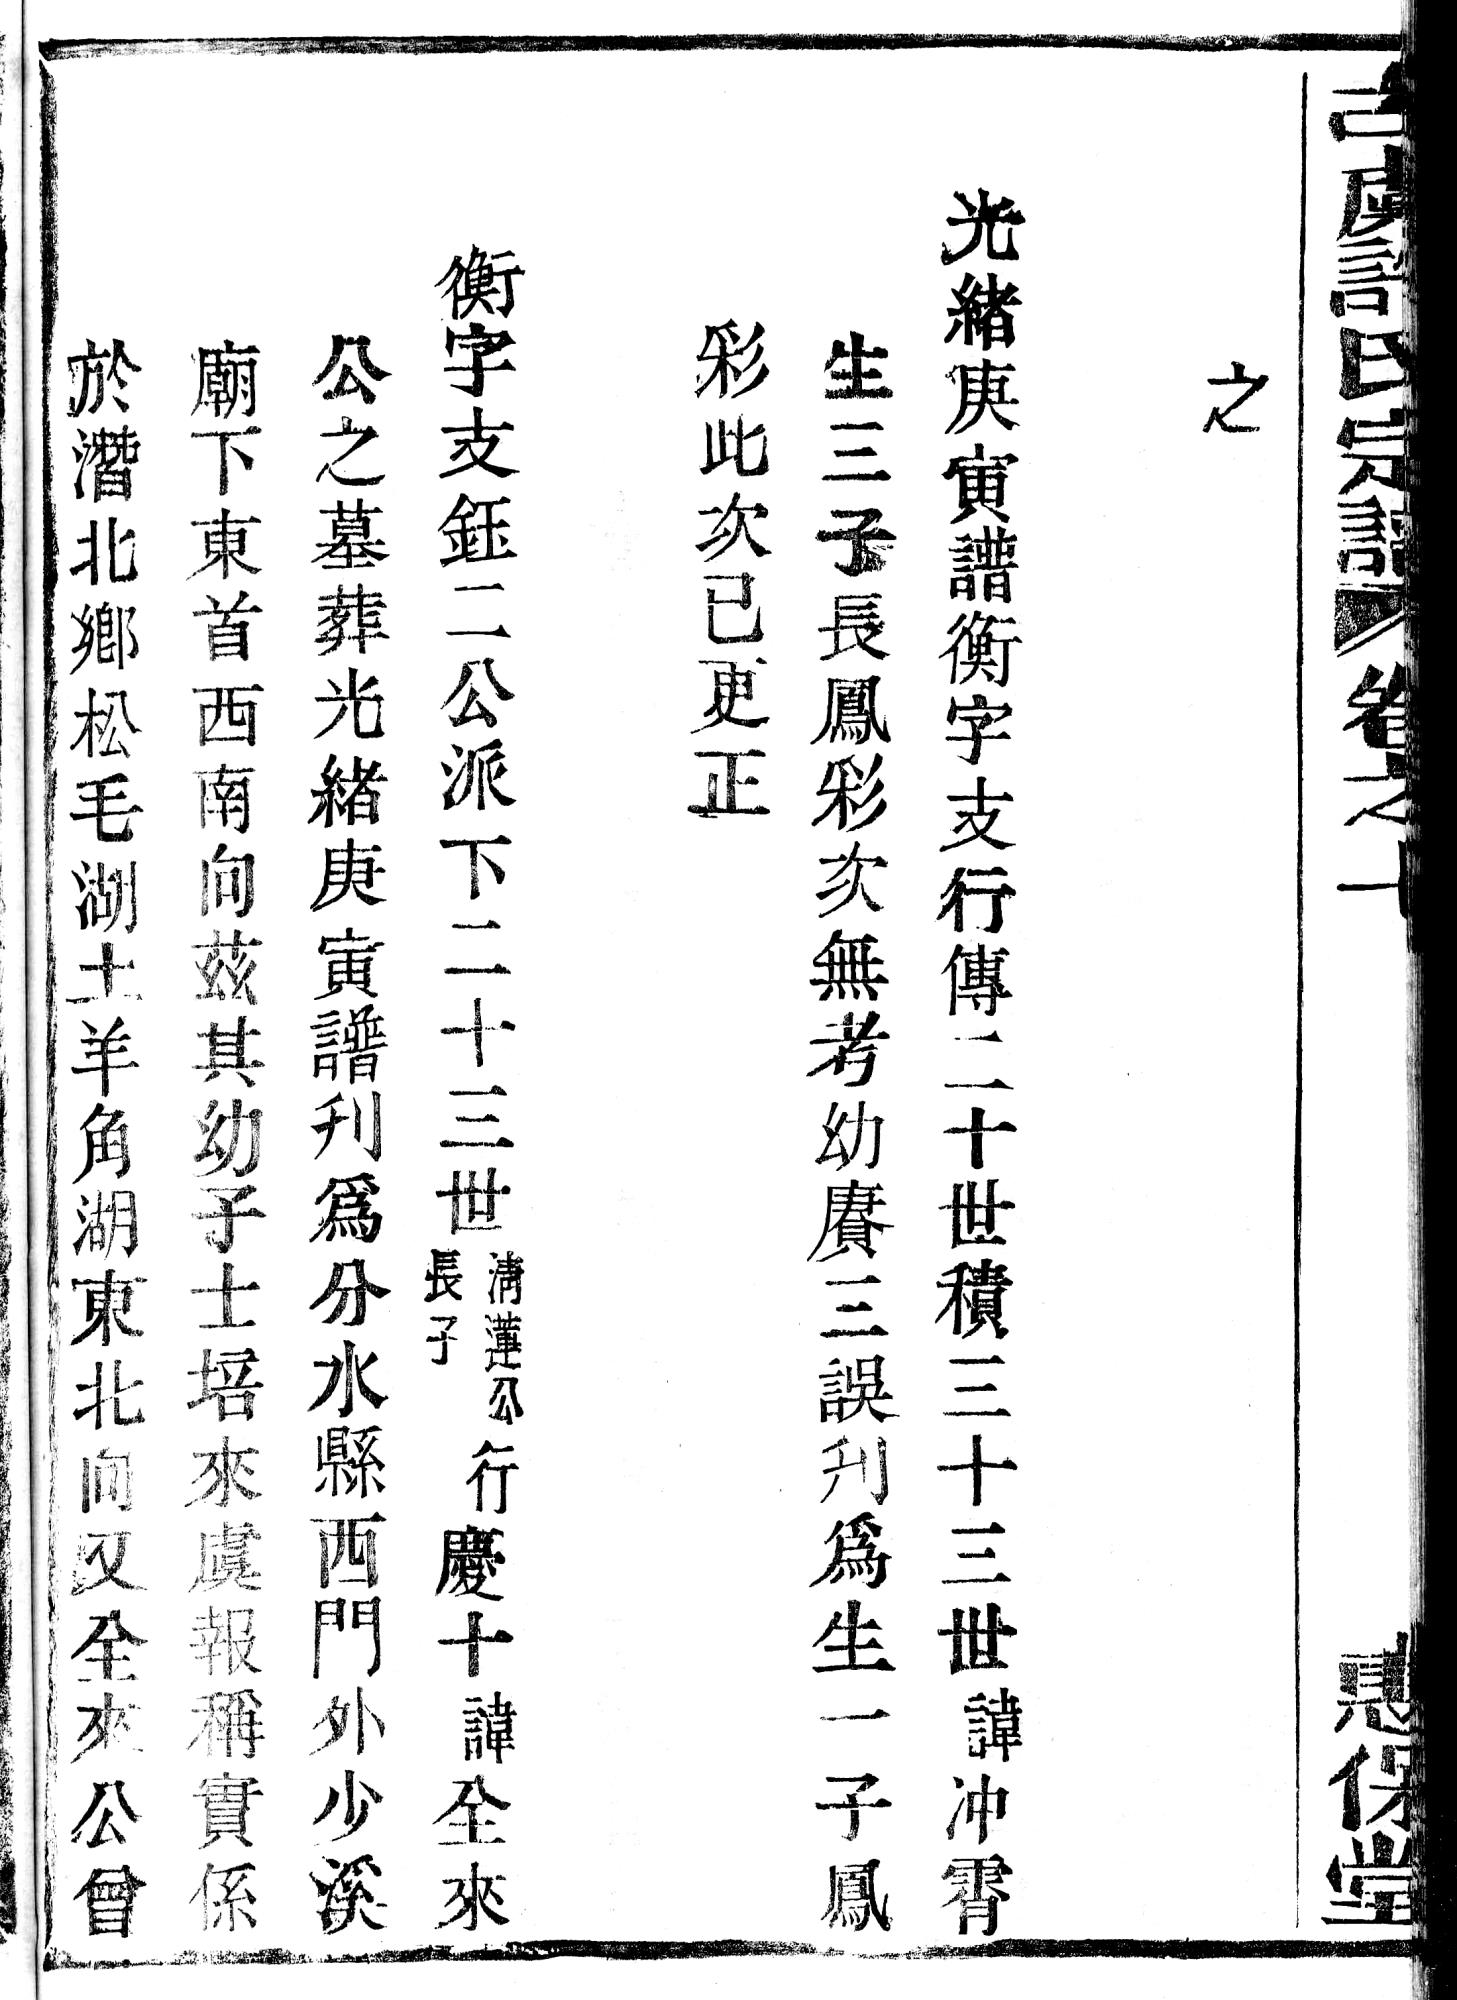 古虞許氏宗譜 卷之十
惠保堂
之
光緒庚寅譜衡字支行傳二十世積三十三世諱冲霄
生三子長鳳彩次無考幼賡三誤刋爲生一子鳳
彩此次已更正
衡字支鈺二公派下二十三世清蓮公長子行慶十諱全來
公之墓葬光緒庚寅譜刋爲分水縣西門外少溪
廟下東首西南向茲其幼子士培來虞報稱實係
於潛北鄉松毛湖土羊角湖東北向又全來公曾